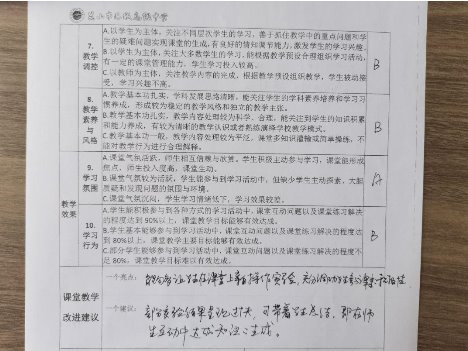 昆山市花桥高级中学
7. 教学调控
A.以学生为主体，关注不同层次学生的学习，善于抓住教学中的重点问题和学
生的疑难问题实现课堂的生成，有良好的情知调节能力，激发学生的学习兴趣。
B.以学生为主体，关注大多数学生的学习，能根据教学预设合理组织学习活动，
有一定的课堂管理能力，学生学习投入较高。
C.以教师为主体，关注教学内容的完成，根据教学预设组织教学，学生被动接
受，学习兴趣不高。
B
8. 教学素养与风格
A.教学基本功扎实，学科发展思路清晰，能关注学生的学科素养培养和学习习
惯养成，形成较为稳定的教学风格和独立的教学主张。
B.教学基本功扎实，教学内容处理较为科学、合理，能关注到学生的知识积累
和能力养成，有较为清晰的教学认识或者熟练演绎学校教学模式。
C.教学基本功一般，教学内容处理较为平淡，课堂多知识灌输或简单操练，不
能对教学行为进行合理解释。
B
教学效果
9. 学习氛围
A.课堂气氛活跃，师生相互信赖与欣赏，学生积极主动参与学习，课堂能形成
焦点，师生投入度高，课堂生动。
B.课堂气氛较为活跃，学生能参与到学习活动中，但缺少学生主动探索、大胆
质疑和发现问题的氛围与环境。
C.课堂气氛沉闷，学生学习情绪低下，学习效果较差。
A
10. 学习行为
A.学生能积极参与到各种方式的学习活动中，课堂互动问题以及课堂练习解决
的程度达到 90%以上，课堂教学目标能够有效达成。
B.学生基本能够参与到学习活动中，课堂互动问题以及课堂练习解决的程度达
到 80%以上，课堂教学主要目标能够有效达成。
C.部分学生能够参与到学习活动中，课堂互动问题以及课堂练习解决的程度不
足 80%，课堂教学目标难以有效达成。
B
课堂教学改进建议
一个亮点：
让学生在课堂上
一个建议：
部分实验结果呈现过快，可带着学生总结，即在师
生互动中达成知识之生成。